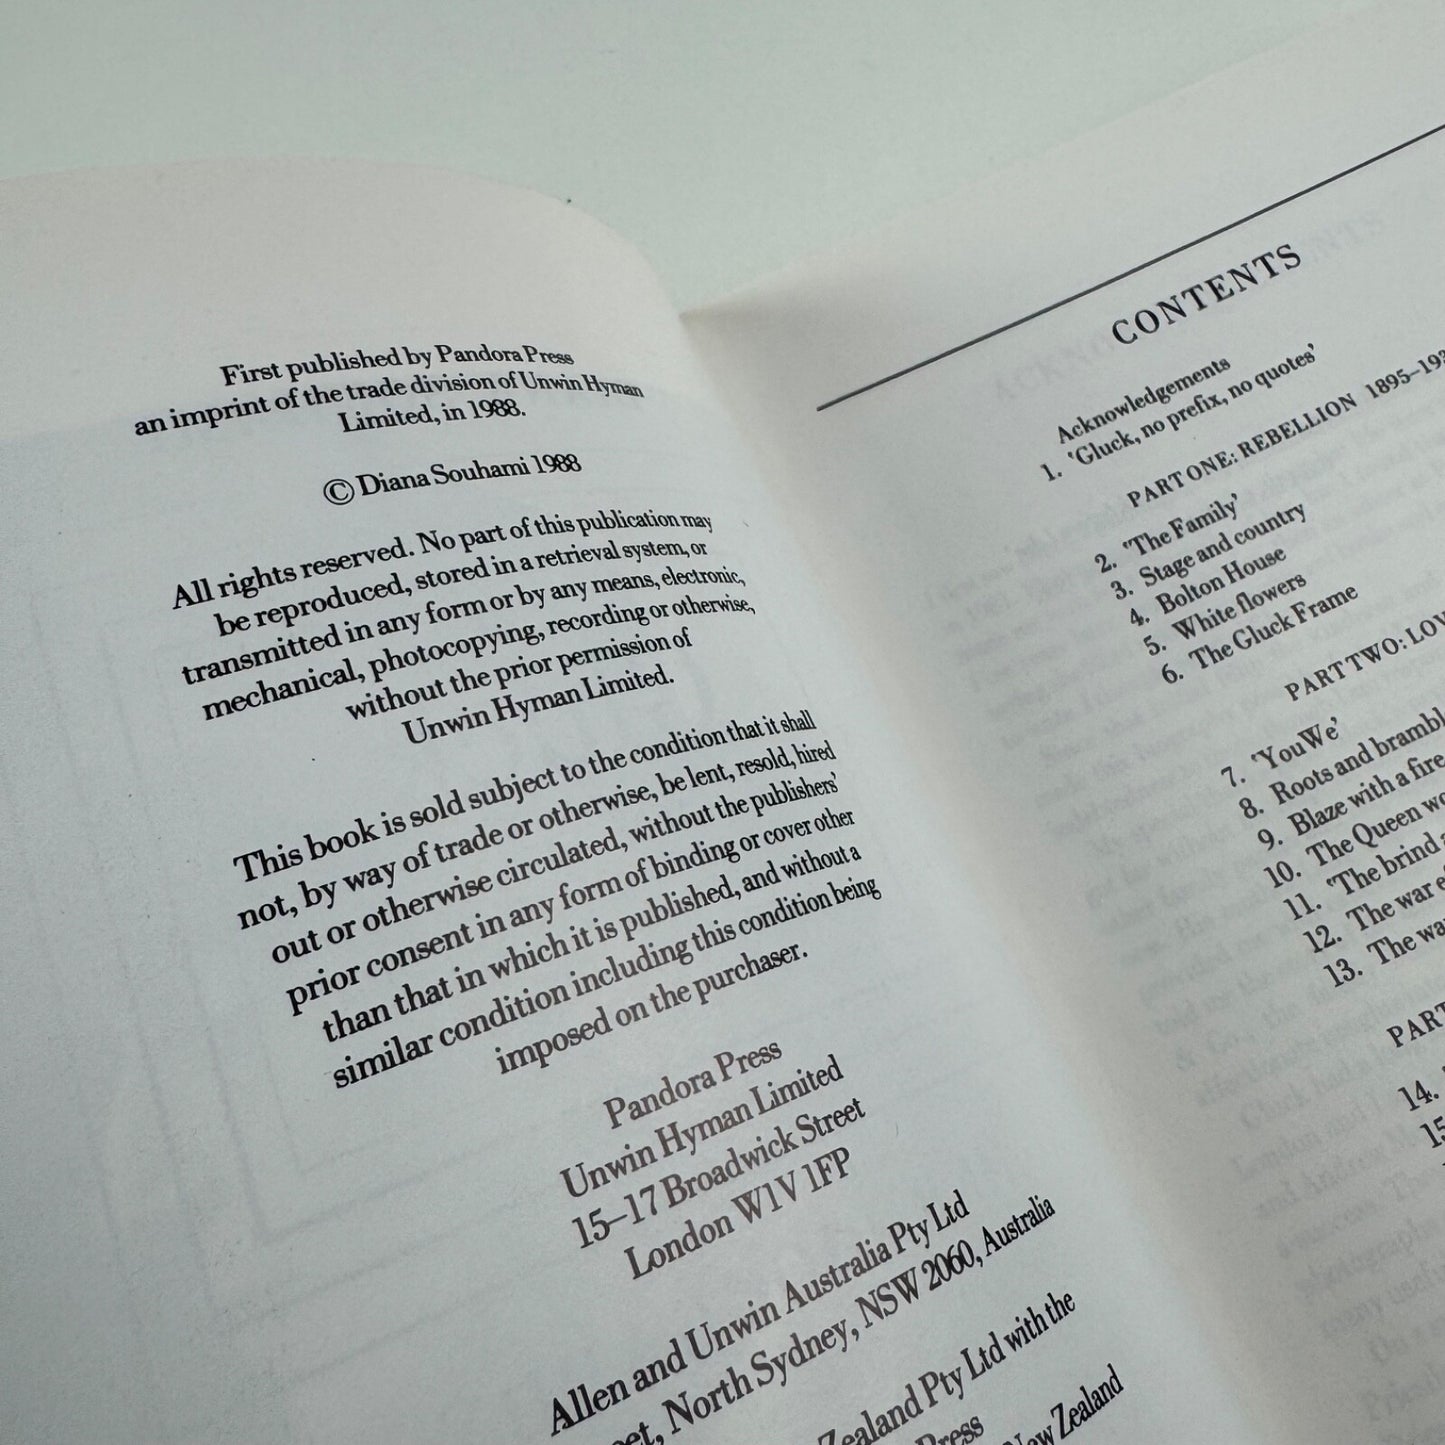 First published by Pandora Press
an imprint of the trade division of Unwin Hyman
Limited, in 1988.
© Diana Souhami 1988
All rights reserved. No part of this publication may
be reproduced, stored in a retrieval system, or
transmitted in any form or by any means, electronic,
mechanical, photocopying, recording or otherwise,
without the prior permission of
Unwin Hyman Limited.
This book is sold subject to the condition that it shall
not, by way of trade or otherwise, be lent, resold, hired
out or otherwise circulated, without the publishers'
prior consent in any form of binding or cover other
than that in which it is published, and without a
similar condition including this condition being
imposed on the purchaser.
Pandora Press
Unwin Hyman Limited
15–17 Broadwick Street
London W1V 1FP
Allen and Unwin Australia Pty Ltd
North Sydney, NSW 2060, Australia
Zealand Pty Ltd with the
Press
New Zealand
CONTENTS
Acknowledgements
1. 'Gluck, no prefix, no quotes'
PART ONE: REBELLION 1895–193
2. 'The Family'
3. Stage and country
4. Bolton House
5. White flowers
6. The Gluck Frame
PART TWO: LOV
7. 'YouWe'
8. Roots and brambl
9. Blaze with a fire
10. The Queen wo
11. 'The brind a
12. The war e
13. The wa
PART
14.
15